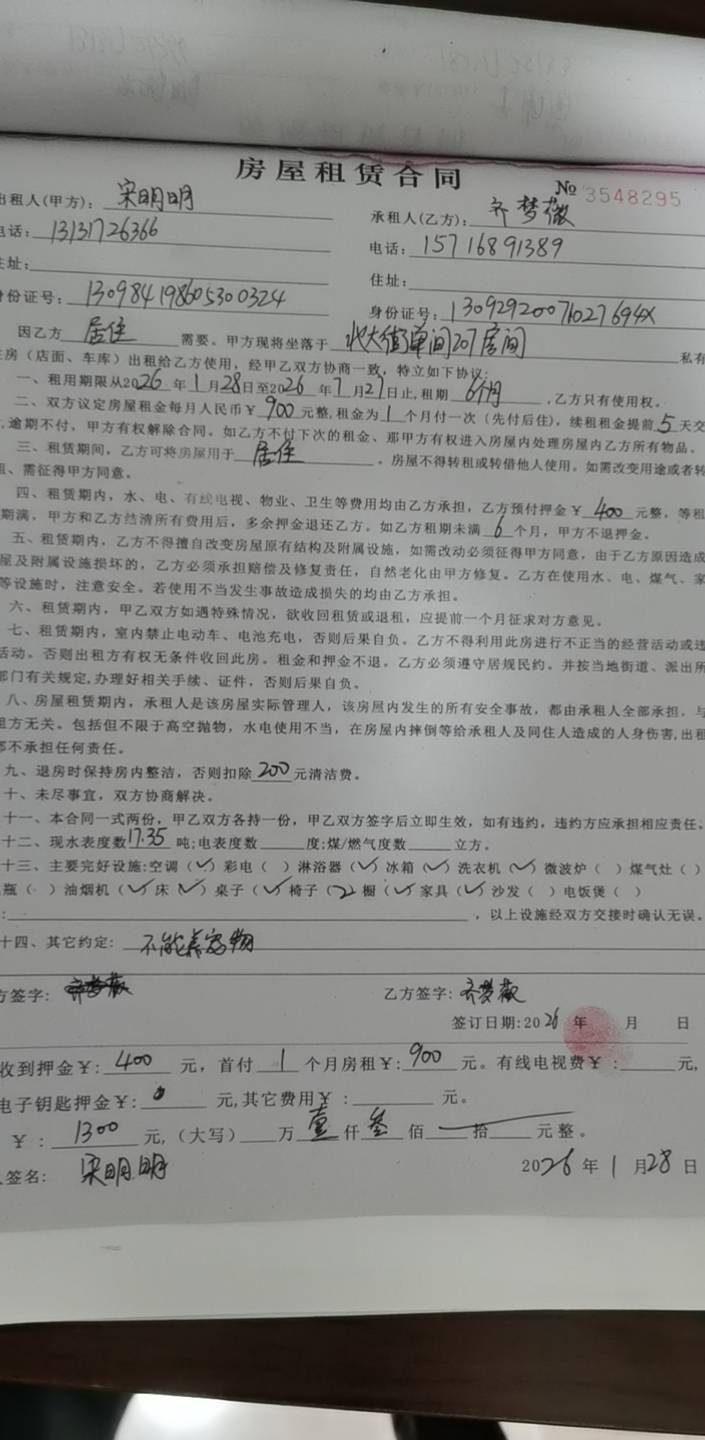 房屋租赁合同
№ 3548295
出租人(甲方): 宋明明
承租人(乙方): 齐梦薇
电话: 13131726366
电话: 15716891389
住址:
住址:
身份证号: 130984198605300324
身份证号: 13092920071027694X
因乙方 居住 需要。甲方现将坐落于 北大街单间207房间 私有
住房（店面、车库）出租给乙方使用，经甲乙双方协商一致，特立如下协议:
一、租用期限从2026年1月28日至2026年7月27日止,租期 6个月 ,乙方只有使用权。
二、双方议定房屋租金每月人民币￥ 900 元整,租金为 1 个月付一次（先付后住），续租租金提前 5 天交
,逾期不付，甲方有权解除合同。如乙方不付下次的租金、那甲方有权进入房屋内处理房屋内乙方所有物品。
三、租赁期间，乙方可将房屋用于 居住 。房屋不得转租或转借他人使用。如需改变用途或者转
租、需征得甲方同意。
四、租赁期内，水、电、有线电视、物业、卫生等费用均由乙方承担，乙方预付押金￥ 400 元整，等租
期满，甲方和乙方结清所有费用后，多余押金退还乙方。如乙方租期未满 6 个月，甲方不退押金。
五、租赁期内，乙方不得擅自改变房屋原有结构及附属设施，如需改动必须征得甲方同意，由于乙方原因造成
屋及附属设施损坏的，乙方必须承担赔偿及修复责任，自然老化由甲方修复。乙方在使用水、电、煤气、家
等设施时，注意安全。若使用不当发生事故造成损失的均由乙方承担。
六、租赁期内，甲乙双方如遇特殊情况，欲收回租赁或退租，应提前一个月征求对方意见。
七、租赁期内，室内禁止电动车、电池充电，否则后果自负。乙方不得利用此房进行不正当的经营活动或违
活动。否则出租方有权无条件收回此房。租金和押金不退。乙方必须遵守居规民约。并按当地街道、派出所
部门有关规定,办理好相关手续、证件，否则后果自负。
八、房屋租赁期内，承租人是该房屋实际管理人，该房屋内发生的所有安全事故，都由承租人全部承担，与
租方无关。包括但不限于高空抛物，水电使用不当，在房屋内摔倒等给承租人及同住人造成的人身伤害,出租
都不承担任何责任。
九、退房时保持房内整洁，否则扣除 200 元清洁费。
十、未尽事宜，双方协商解决。
十一、本合同一式两份，甲乙双方各持一份，甲乙双方签字后立即生效，如有违约，违约方应承担相应责任。
十二、现水表度数 17.35 吨;电表度数 度;煤/燃气度数 立方。
十三、主要完好设施:空调（✓）彩电（ ）淋浴器（✓）冰箱（✓）洗衣机（✓）微波炉（ ）煤气灶（ ）
瓶（ ）油烟机（✓）床（✓）桌子（✓）椅子（2）橱（✓）家具（✓）沙发（ ）电饭煲（ ）
: ，以上设施经双方交接时确认无误。
十四、其它约定: 不能养宠物
方签字:
乙方签字: 齐梦薇
签订日期:2026 年 月 日
收到押金￥: 400 元，首付 1 个月房租￥: 900 元。有线电视费￥: 元,
电子钥匙押金￥: 0 元,其它费用￥: 元。
￥: 1300 元,（大写） 万 壹 仟 叁 佰 拾 元整。
人签名: 宋明明
2026 年 1 月 28 日